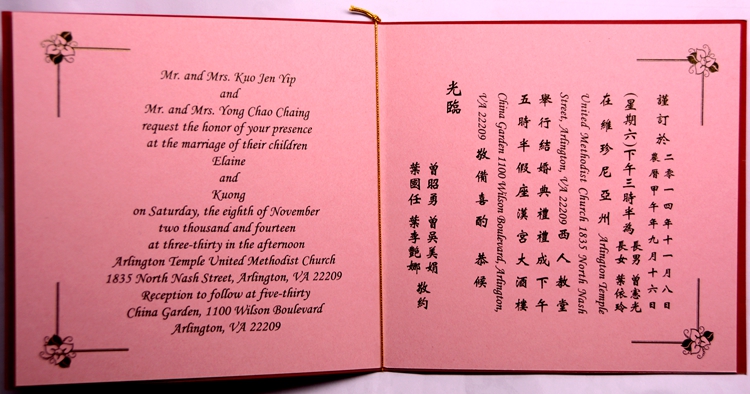 Mr. and Mrs. Kuo Jen Yip
and
Mr. and Mrs. Yong Chao Chaing
request the honor of your presence
at the marriage of their children
Elaine
and
Kuong
on Saturday, the eighth of November
two thousand and fourteen
at three-thirty in the afternoon
Arlington Temple United Methodist Church
1835 North Nash Street, Arlington, VA 22209
Reception to follow at five-thirty
China Garden, 1100 Wilson Boulevard
Arlington, VA 22209
謹訂於 二零一四年十一月八日
農曆甲午年九月十六日
(星期六)下午三時半為 長男 曾憲光
長女 葉依玲
在維珍尼亞州 Arlington Temple
United Methodist Church 1835 North Nash
Street, Arlington, VA 22209 西人教堂
舉行結婚典禮禮成下午
五時半假座漢宮大酒樓
China Garden 1100 Wilson Boulevard, Arlington,
VA 22209 敬備喜酌 恭候
光臨
曾昭勇 曾吳美娟
葉國任 葉李艷娜 敬約